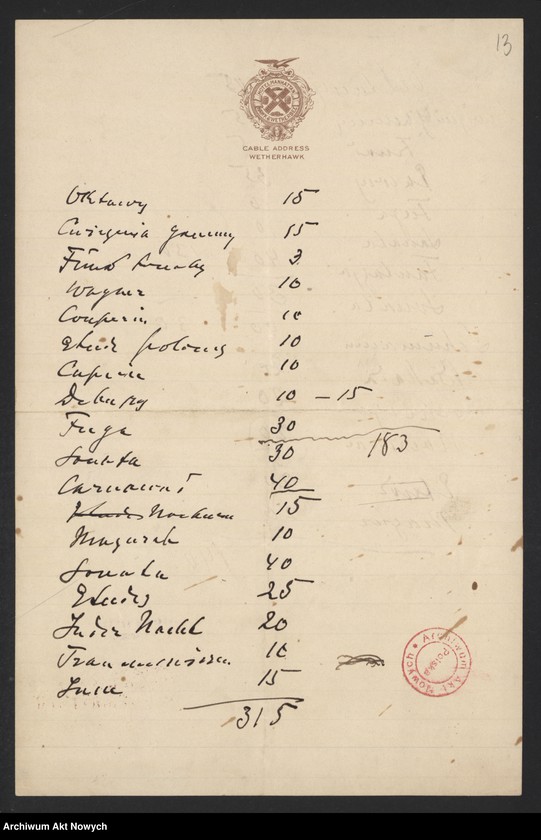 13
HOTEL MANHATTAN
CABLE ADDRESS
WETHERHAWK
Oktawy 15
Ćwiczenia gammy 15
3
Wagner 10
Couperin 10
Etude 10
Caprice 10
Debussy 10 – 15
Fuga 30
183
Sonata 30
Carnawał 40
Etudes Nocturn 15
Mazurek 10
Sonata 40
Etudes 25
In der Nacht 20
Traumeswirren 10
15
315
Archiwum Akt Nowych
Polska
Archiwum Akt Nowych